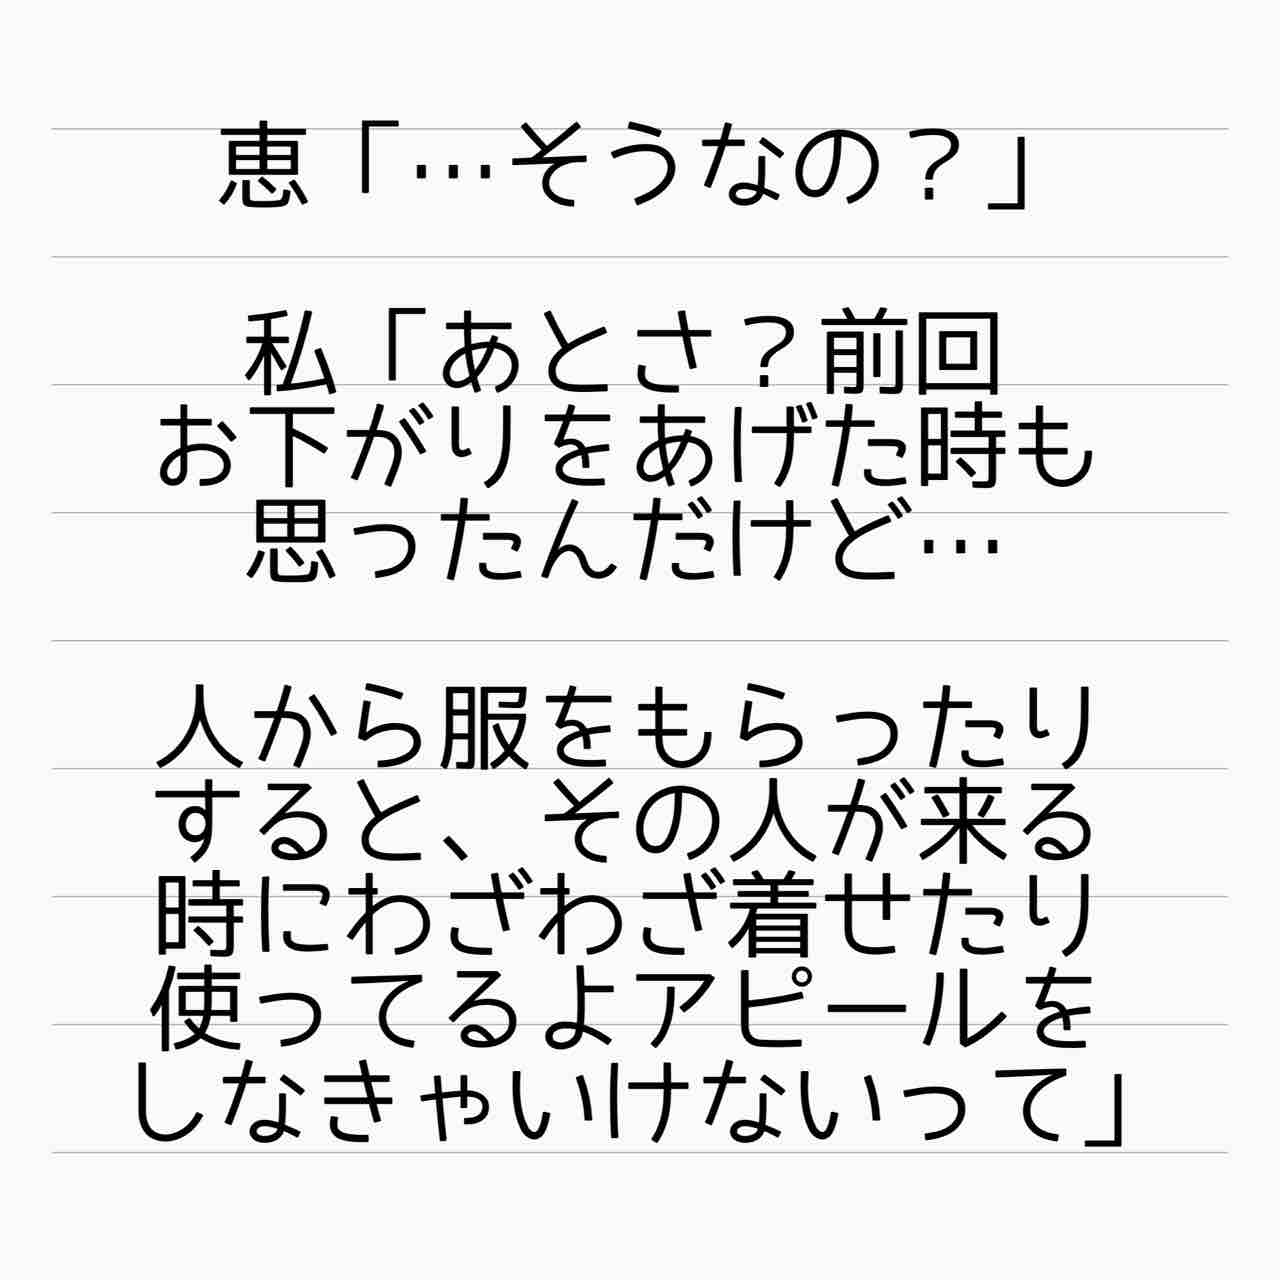 恵「…そうなの？」
私「あとさ？前回
お下がりをあげた時も
思ったんだけど…
人から服をもらったり
すると、その人が来る
時にわざわざ着せたり
使ってるよアピールを
しなきゃいけないって」